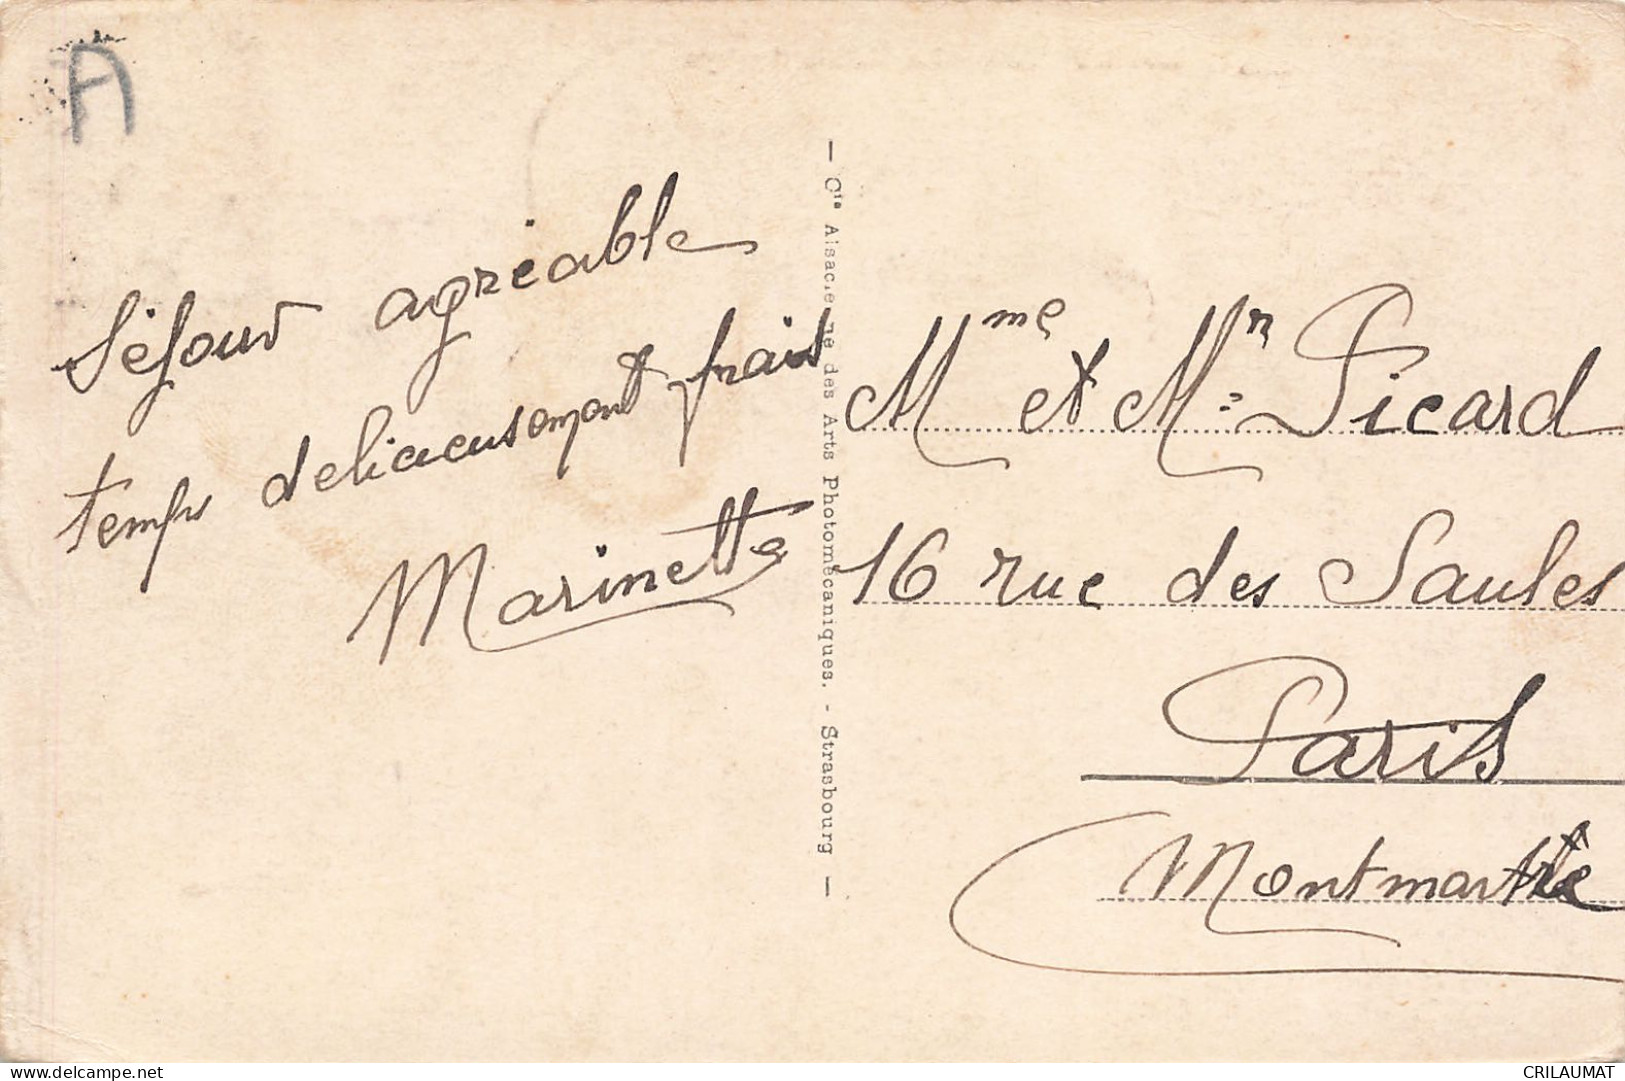 A
Séjour agréable
temps delicieusement frais
Marinette
— Cie Alsacienne des Arts Photomécaniques. - Strasbourg —
Mme et Mr Picard
16 rue des Saules
Paris
Montmartre
delcampe.net
CRILAUMAT